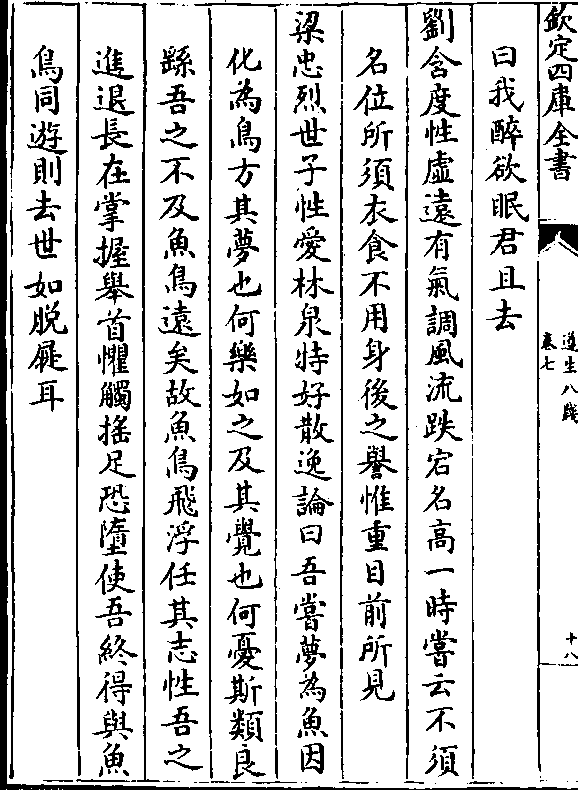 欽定四庫全書
遵生八牋
卷七
十八
曰我醉欲眠君且去
劉含度性虛遠有氣調風流跌宕名高一時嘗云不須
名位所須衣食不用身後之譽惟重目前所見
梁忠烈世子性愛林泉特好散逸論曰吾嘗夢為魚因
化為鳥方其夢也何樂如之及其覺也何憂斯類良
繇吾之不及魚鳥遠矣故魚鳥飛浮任其志性吾之
進退長在掌握舉首懼觸搖足恐墮使吾終得與魚
鳥同遊則去世如脫屣耳